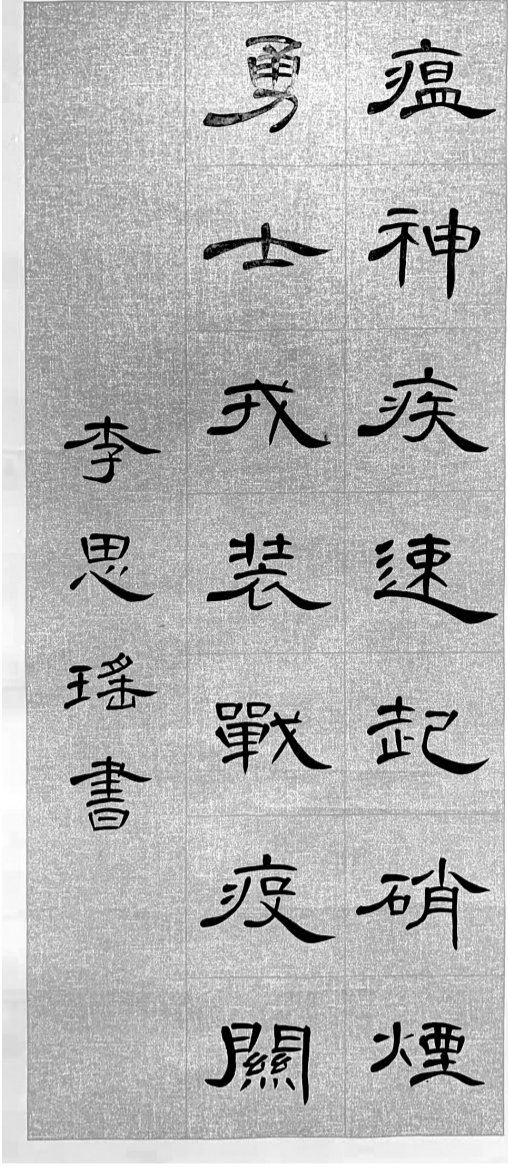 瘟神疾速起硝煙
勇士戎装戰疫關
李思瑤書